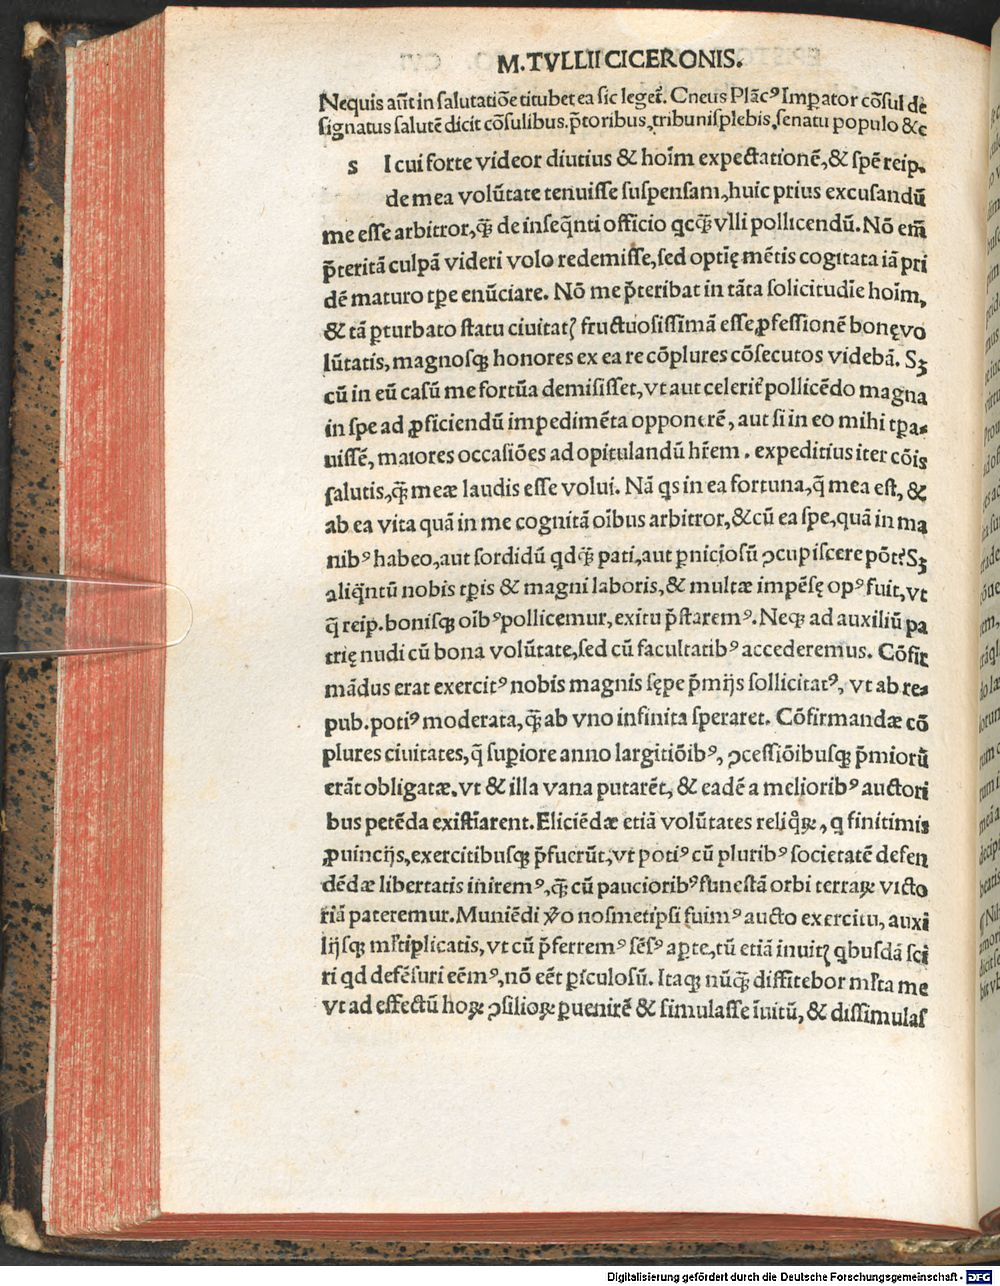 M.TVLLII CICERONIS.
Nequis aūt in salutatiōe titubet ea sic leget᷑. Cneus Plāc⁹ Imperator cōsul de
signatus salutē dicit cōsulibus.p̄toribus,tribunisplebis.senatu populo &c
s I cui forte videor diutius & hoīm expectationē,& spē reip.
de mea volūtate tenuisse suspensam,huic prius excusandū
me esse arbitror,q̄ꝫ de inseq̄nti officio qcq̄ꝫ vlli pollicendū.Nō em̄
p̄teritā culpā videri volo redemisse,sed optię mētis cogitata iā pri
dē maturo tꝑe enūciare. Nō me p̄teribat in tāta solicitudīe hoīm,
& tā ꝑturbato statu ciuitatꝫ fructuosissimā esse ꝓfessionē bonę vo
lūtatis,magnosqꝫ honores ex ea re cōplures cōsecutos videbā. Sꝫ
cū in eū casū me fortūa demisisset,vt aut celerit᷑ pollicēdo magna
in spe ad ꝓficiendū impedimēta opponerē, aut si in eo mihi tꝑa-
uissē, maiores occasiōes ad opitulandū hr̄em . expeditius iter cōis
salutis,q̄ꝫ meæ laudis esse volui. Nā qs in ea fortuna,q̄ mea est, &
ab ea vita quā in me cognitā oībus arbitror,&cū ea spe,quā in ma
nib⁹ habeo,aut sordidū qdq̄ꝫ pati,aut ꝑniciosū ꝯcupiscere pōt?Sꝫ
aliq̄ntū nobis tꝑis & magni laboris,& multæ impēsę op⁹ fuit,vt
q̄ reip.bonisqꝫ oīb⁹ pollicemur,exitu p̄starem⁹. Neqꝫ ad auxiliū pa
trię nudi cū bona volūtate,sed cū facultatib⁹ accederemus. Cōfir
māndus erat exercit⁹ nobis magnis sępe p̄mijs sollicitat⁹, vt ab re-
pub.poti⁹ moderata,q̄ꝫ ab vno infinita speraret. Cōfirmandæ cō
plures ciuitates,q̄ suꝑiore anno largitiōib⁹, ꝯcessiōibusqꝫ p̄miorū
erāt obligatæ.vt & illa vana putarēt, & eadē a meliorib⁹ auctori
bus petēda existīarent.Eliciēdæ etiā volūtates reliq̄ꝝ, q finitimis
ꝓuincijs,exercitibusqꝫ p̄fuerūt,vt poti⁹ cū plurib⁹ societatē defen
dēdæ libertatis inirem⁹,q̄ꝫ cū pauciorib⁹ funestā orbi terraꝝ victo
riā pateremur.Muniēdi v̄o nosmetipsi fuim⁹ aucto exercitu, auxi
lijsqꝫ ml̄tiplicatis, vt cū p̄ferrem⁹ sēs⁹ aꝑte,tū etiā inuitꝫ qbusdā sci
ri qd defēsuri eēm⁹,nō eēt ꝑiculosū. Itaqꝫ nūq̄ꝫ diffitebor ml̄ta me
vt ad effectū hoꝝ ꝯsilioꝝ ꝑuenirē & simulasse īuitū, & dissimulas
Digitalisierung gefördert durch die Deutsche Forschungsgemeinschaft - DFG